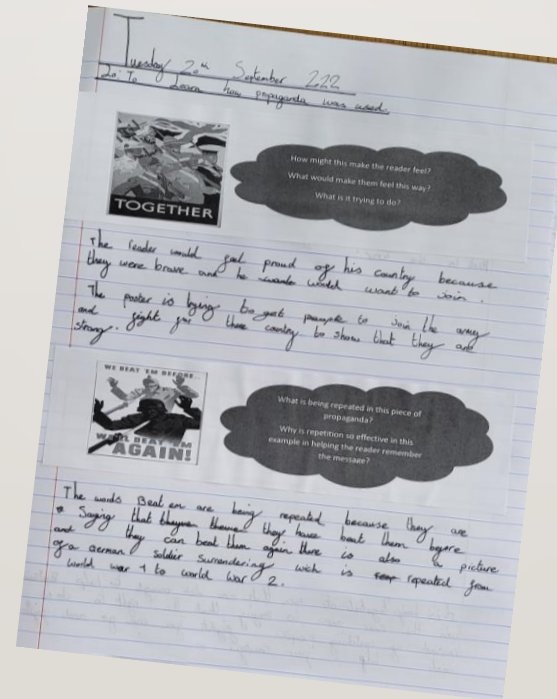 Tuesday 20th September 2022
LO: To Learn how propaganda was used.
TOGETHER
How might this make the reader feel?
What would make them feel this way?
What is it trying to do?
The reader would feel proud of his country because
they were brave and he would want to join.
The poster is trying to get people to join the army
and fight for there country to show that they are
strong.
WE BEAT 'EM BEFORE...
WE'LL BEAT 'EM
AGAIN!
What is being repeated in this piece of
propaganda?
Why is repetition so effective in this
example in helping the reader remember
the message?
The words Beat em are being repeated because they are
Saying that they have beat them before
and they can beat them again there is also a picture
of a German soldier surrendering wich is repeated from
world war 1 to world war 2.